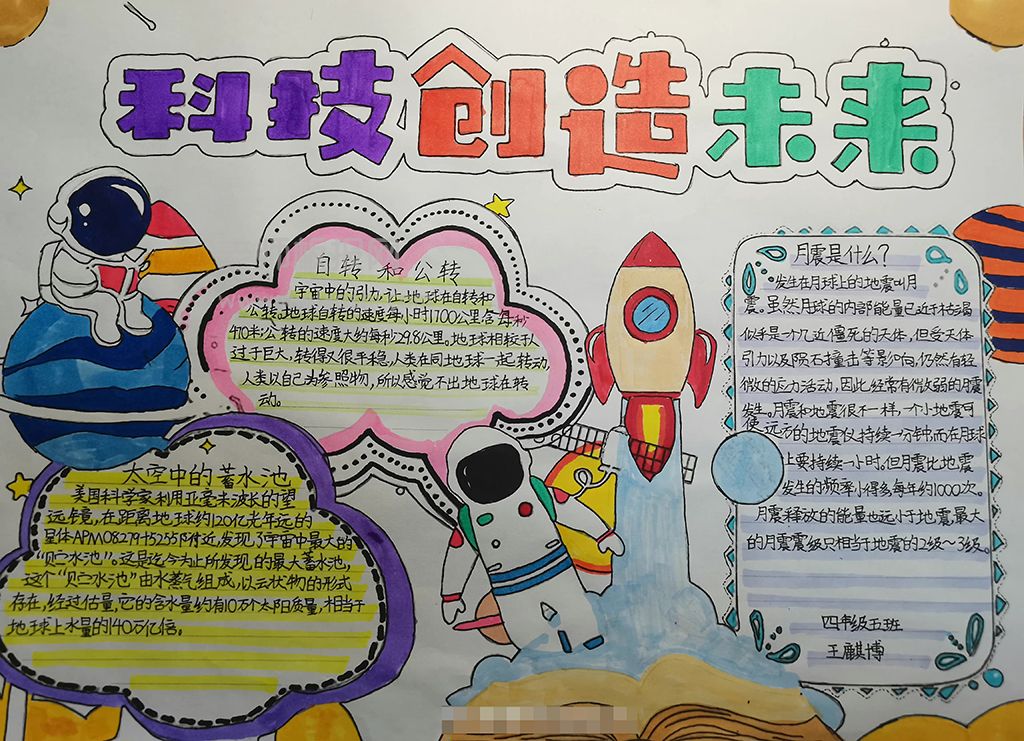 科技创造未来
自转和公转
宇宙中的引力,让地球在自转和
公转,地球自转的速度每小时1700公里合每秒
470米;公转的速度大约每秒29.8公里。地球相较于人
过于巨大,转得又很平稳,人类在同地球一起转动,
人类以自己为参照物,所以感觉不出地球在转
动。
太空中的蓄水池
美国科学家利用亚毫米波长的望
远镜,在距离地球约120亿光年远的
星体APM08279+5255附近,发现了宇宙中最大的
“贝宁水池”。这是迄今为止所发现的最大蓄水池,
这个“贝宁水池”由水蒸气组成,以云状物的形式
存在,经过估量,它的含水量约有10万个太阳质量,相当于
地球上水量的140万亿倍。
月震是什么?
发生在月球上的地震叫月
震。虽然月球的内部能量已近于枯竭
似乎是一个几近僵死的天体,但受天体
引力以及陨石撞击等影响,仍然有轻
微的应力活动,因此经常有微弱的月震
发生。月震和地震很不一样,一个小地震可
使远方的地震仪持续一分钟,而在月球
上要持续一小时,但月震比地震
发生的频率小得多每年约1000次。
月震释放的能量也远小于地震,最大
的月震震级只相当于地震的2级~3级。
四年级五班
王麒博